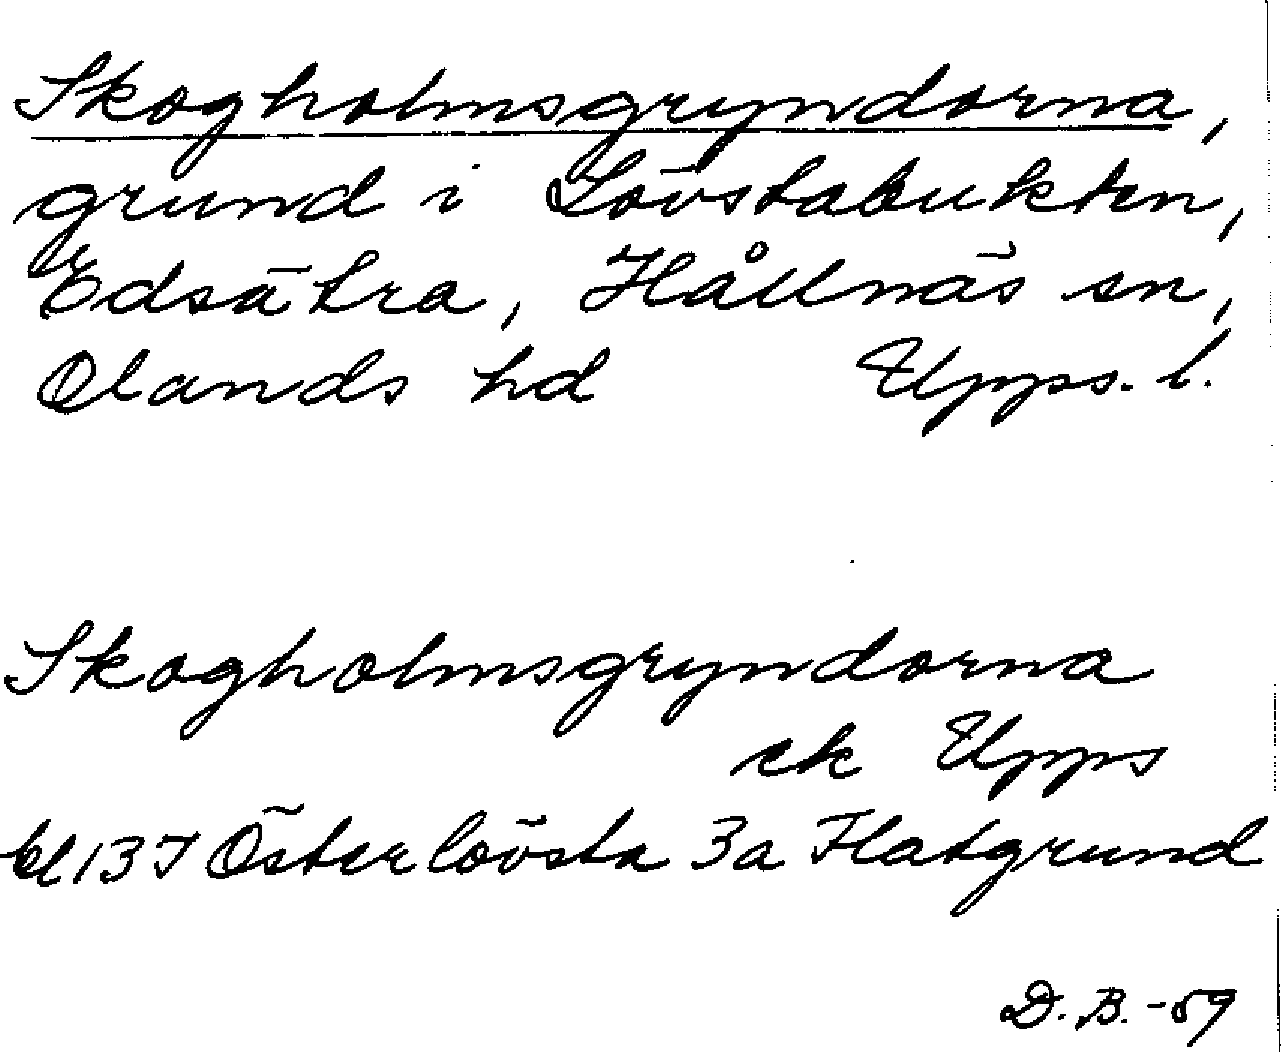 Skogholmsgryndorna,
grund i Lövstabukten,
Edsätra, Hållnäs sn,
Olands hd Upps. l.
Skogholmsgryndorna
ek Upps
bl 13 I Österlövsta 3a Flatgrund
D. B. -59